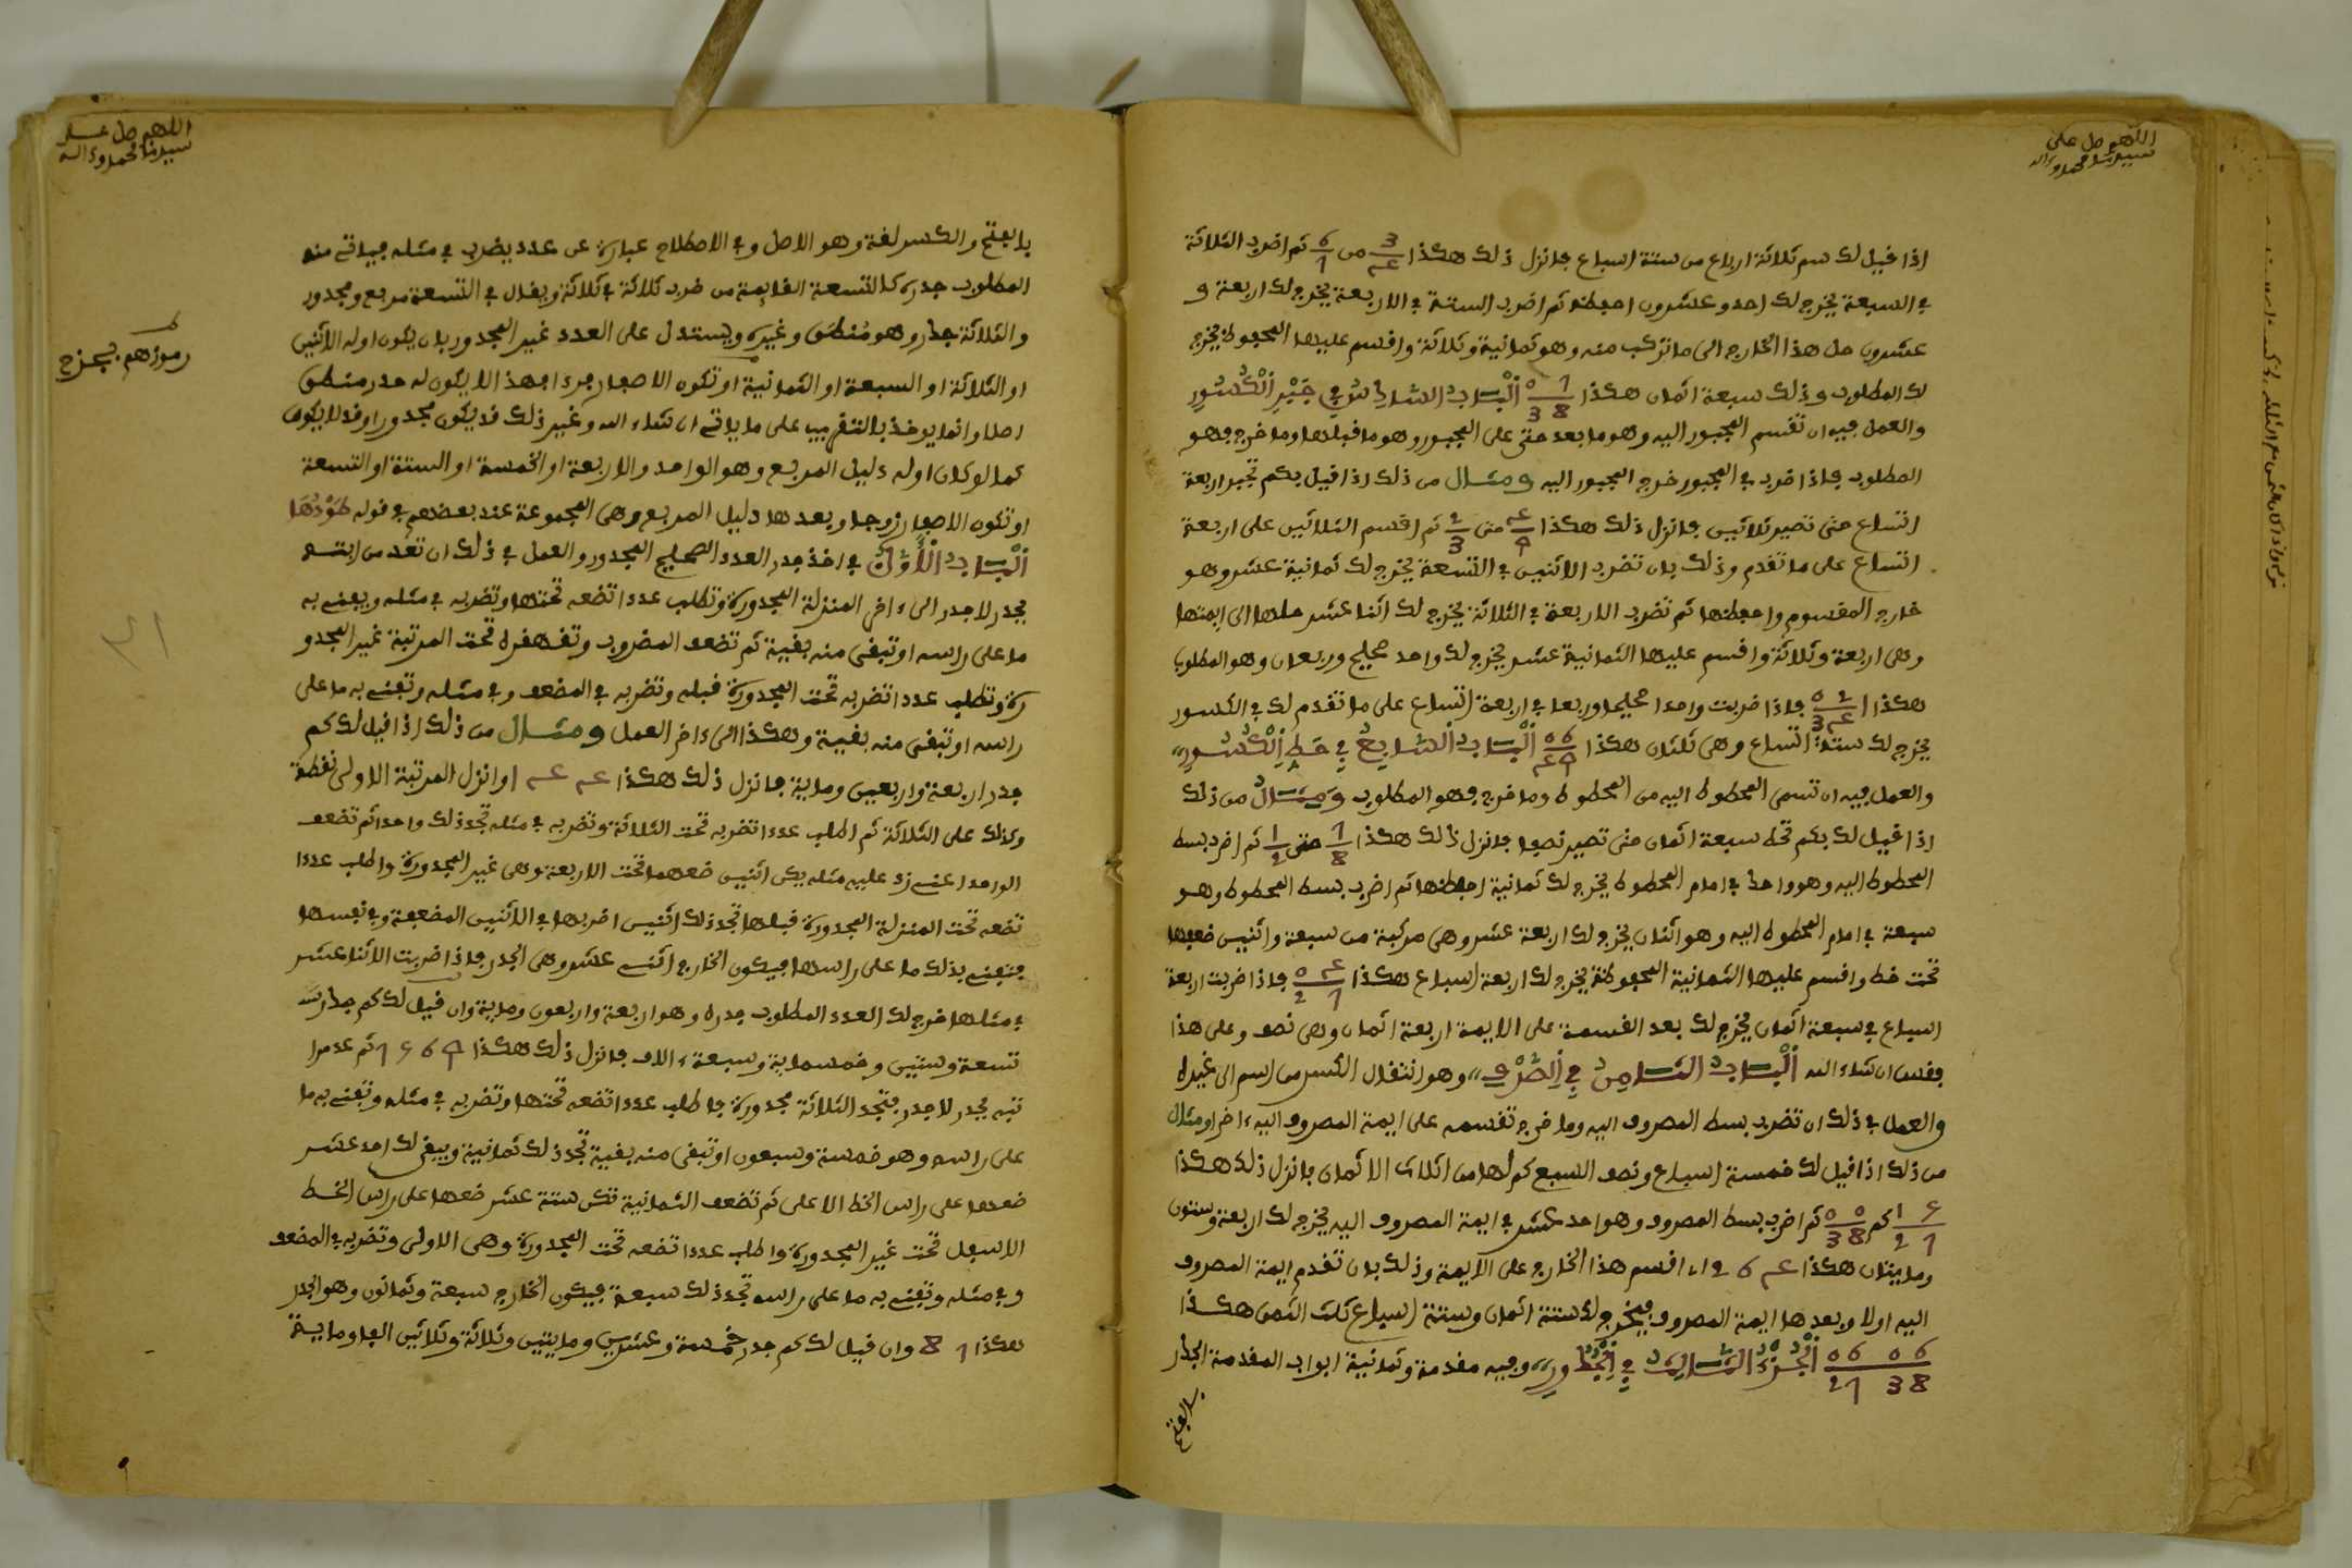 اللهم صل على
سيدنا محمد وءاله
اذا قيل لك سم ثلاثة ارباع من ستة اسباع فانزل ذلك هكذا 3/4 من 6/7 ثم اضرب الثلاثة
في السبعة يخرج لك احد وعشرون احفظه ثم اضرب الستة في الاربعة يخرج لك اربعة و
عشرون حل هذا الخارج الى ما تركب منه وهو ثمانية وثلاثة واقسم عليها المحفوظ يخرج
لك المطلوب وذلك سبعة اثمان هكذا 7 0 / 8 3 اَلْبَابُ السَّادِسُ فِي جَبْرِ اِلْكُسُورِ
والعمل فيه ان تقسم المجبور اليه وهو ما بعد حتى على المجبور وهو ما قبلها وما خرج فهو
المطلوب فاذا ضرب في المجبور خرج المجبور اليه ومثال من ذلك اذا قيل بكم تجبر اربعة
اتساع حتى تصير ثلاثين فانزل ذلك هكذا 4/9 حتى 2/3 ثم اقسم الثلاثين على اربعة
اتساع على ما تقدم وذلك بان تضرب الاثنين في التسعة يخرج لك ثمانية عشر وهو
خارج المقسوم واحفظها ثم تضرب الاربعة في الثلاثة يخرج لك اثنا عشر حلها الى ايمتها
وهي اربعة وثلاثة واقسم عليها الثمانية عشر يخرج لك واحد صحيح وربعان وهو المطلوب
هكذا 2 0 / 4 3 1 فاذا ضربت واحدا صحيحا وربعا في اربعة اتساع على ما تقدم لك في الكسور
يخرج لك ستة اتساع وهي ثلثان هكذا 6 0 / 9 4 اَلْبَابُ السَّابِعُ فِي حَطِّ اِلْكُسُورِ
والعمل فيه ان تسمي المحطوط اليه من المحطوط وما خرج فهو المطلوب ومثال من ذلك
اذا قيل لك بكم تحط سبعة اثمان حتى تصير نصفا فانزل ذلك هكذا 7/8 حتى 1/2 ثم اضرب بسط
المحطوط اليه وهو واحد في امام المحطوط يخرج لك ثمانية احفظها ثم اضرب بسط المحطوط وهو
سبعة في امام المحطوط اليه وهو اثنان يخرج لك اربعة عشر وهي مركبة من سبعة واثنين ضعها
تحت خط واقسم عليها الثمانية المحفوظة يخرج لك اربعة اسباع هكذا 4 0 / 7 2 فاذا ضربت اربعة
اسباع في سبعة اثمان يخرج لك بعد القسمة على الايمة اربعة اثمان وهي نصف وعلى هذا
فقس ان شاء الله اَلْبَابُ الثَّامِنُ فِي اِلصَّرْفِ وهو انتقال الكسر من اسم الى غيره
والعمل في ذلك ان تضرب بسط المصروف اليه وما خرج تقسمه على ايمة المصروف اليه ءاخرا ومثال
من ذلك اذا قيل لك خمسة اسباع ونصف السبع كم لها من اثلاث الاثمان فانزل ذلك هكذا
1 5 / 2 7 كم 0 0 / 3 8 ثم اضرب بسط المصروف وهو احد عشر في ايمة المصروف اليه يخرج لك اربعة وستون
ومايتان هكذا 4 6 2 اقسم هذا الخارج على الايمة وذلك بان تقدم ايمة المصروف
اليه اولا وبعدها ايمة المصروف فيخرج لك ستة اثمان وستة اسباع ثلث الثمن هكذا
6 0 6 0 / 8 3 7 2 اَلْجُزْءُ الثَّالِثُ فِي اِلْجُذُورِ وفيه مقدمة وثمانية ابواب المقدمة الجذر
بالفتح
اللهم صل على
سيدنا محمد وءاله
بالفتح والكسر لغة وهو الاصل وفي الاصطلاح عبارة عن عدد يضرب في مثله فياتي منه
المطلوب جدره كالتسعة القايمة من ضرب ثلاثة في ثلاثة ويقال في التسعة مربع ومجدور
والثلاثة جذر وهو مُنطق وغيره ويستدل على العدد غير المجدور بان يكون اوله الاثنين
رموزهم بجزح
او الثلاثة او السبعة او الثمانية او تكون الاصفار فردا فهذا لا يكون له جدر منطق
اصلا وانما يوخذ بالتقريب على ما ياتي ان شاء الله وغير ذلك قد يكون مجدورا وقد لا يكون
كما لو كان اوله دليل المربع وهو الواحد والاربعة او الخمسة او الستة او التسعة
او تكون الاصفار زوجا وبعدها دليل المربع وهي المجموعة عند بعضهم في قوله
اَلْبَابُ اَلْأَوَّلُ في اخذ جدر العدد الصحيح المجدور والعمل في ذلك ان تعد مراتبه
بجدر لا جدر الى ءاخر المنزلة المجدورة وتطلب عددا تضعه تحتها وتضربه في مثله ويفنى به
ما على راسه او تبقى منه بقية ثم تضعف المضروب وتقهقره تحت المرتبة غير المجدو
رة وتطلب عددا تضربه تحت المجدورة قبله وتضربه في المضعف وفي مثله وتفنى به ما على
راسه او تبقى منه بقية وهكذا الى ءاخر العمل ومثال من ذلك اذا قيل لك كم
جدر اربعة واربعين وماية فانزل ذلك هكذا 4 4 1 وانزل المرتبة الاولى نقطة
وكذلك على الثلاثة ثم اطلب عددا تضربه تحت الثلاثة وتضربه في مثله تجد ذلك واحدا ثم تضعف
الواحد اعني زد عليه مثله يكن اثنين ضعهما تحت الاربعة وهي غير المجدورة واطلب عددا
تضعه تحت المنزلة المجدورة قبلها تجد ذلك اثنين اضربها في الاثنين المضعفة وفي نفسها
فيفنى بذلك ما على راسها فيكون الخارج اثني عشر وهي الجدر فاذا ضربت الاثنا عشر
في مثلها خرج لك العدد المطلوب جدره وهو اربعة واربعون وماية وان قيل لك كم جذر
تسعة وستين وخمسماية وسبعة ءالاف فانزل ذلك هكذا 9 6 5 7 ثم عد مرا
تبه بجدر لا جدر فتجد الثلاثة مجدورة فاطلب عددا تضعه تحتها وتضربه في مثله وتفنى به ما
على راسه وهو خمسة وسبعون او تبقى منه بقية تجد ذلك ثمانية ويبقى لك احد عشر
ضعها على راس الخط الاعلى ثم تضعف الثمانية تكن ستة عشر ضعها على راس الخط
الاسفل تحت غير المجدورة واطلب عددا تضعه تحت المجدورة وهي الاولى وتضربه في المضعف
وفي مثله وتفنى به ما على راسه تجد ذلك سبعة فيكون الخارج سبعة وثمانون وهو الجدر
هكذا 7 8 وان قيل لك كم جدر خمسة وعشرين ومايتين وثلاثة وثلاثين الفا وماية